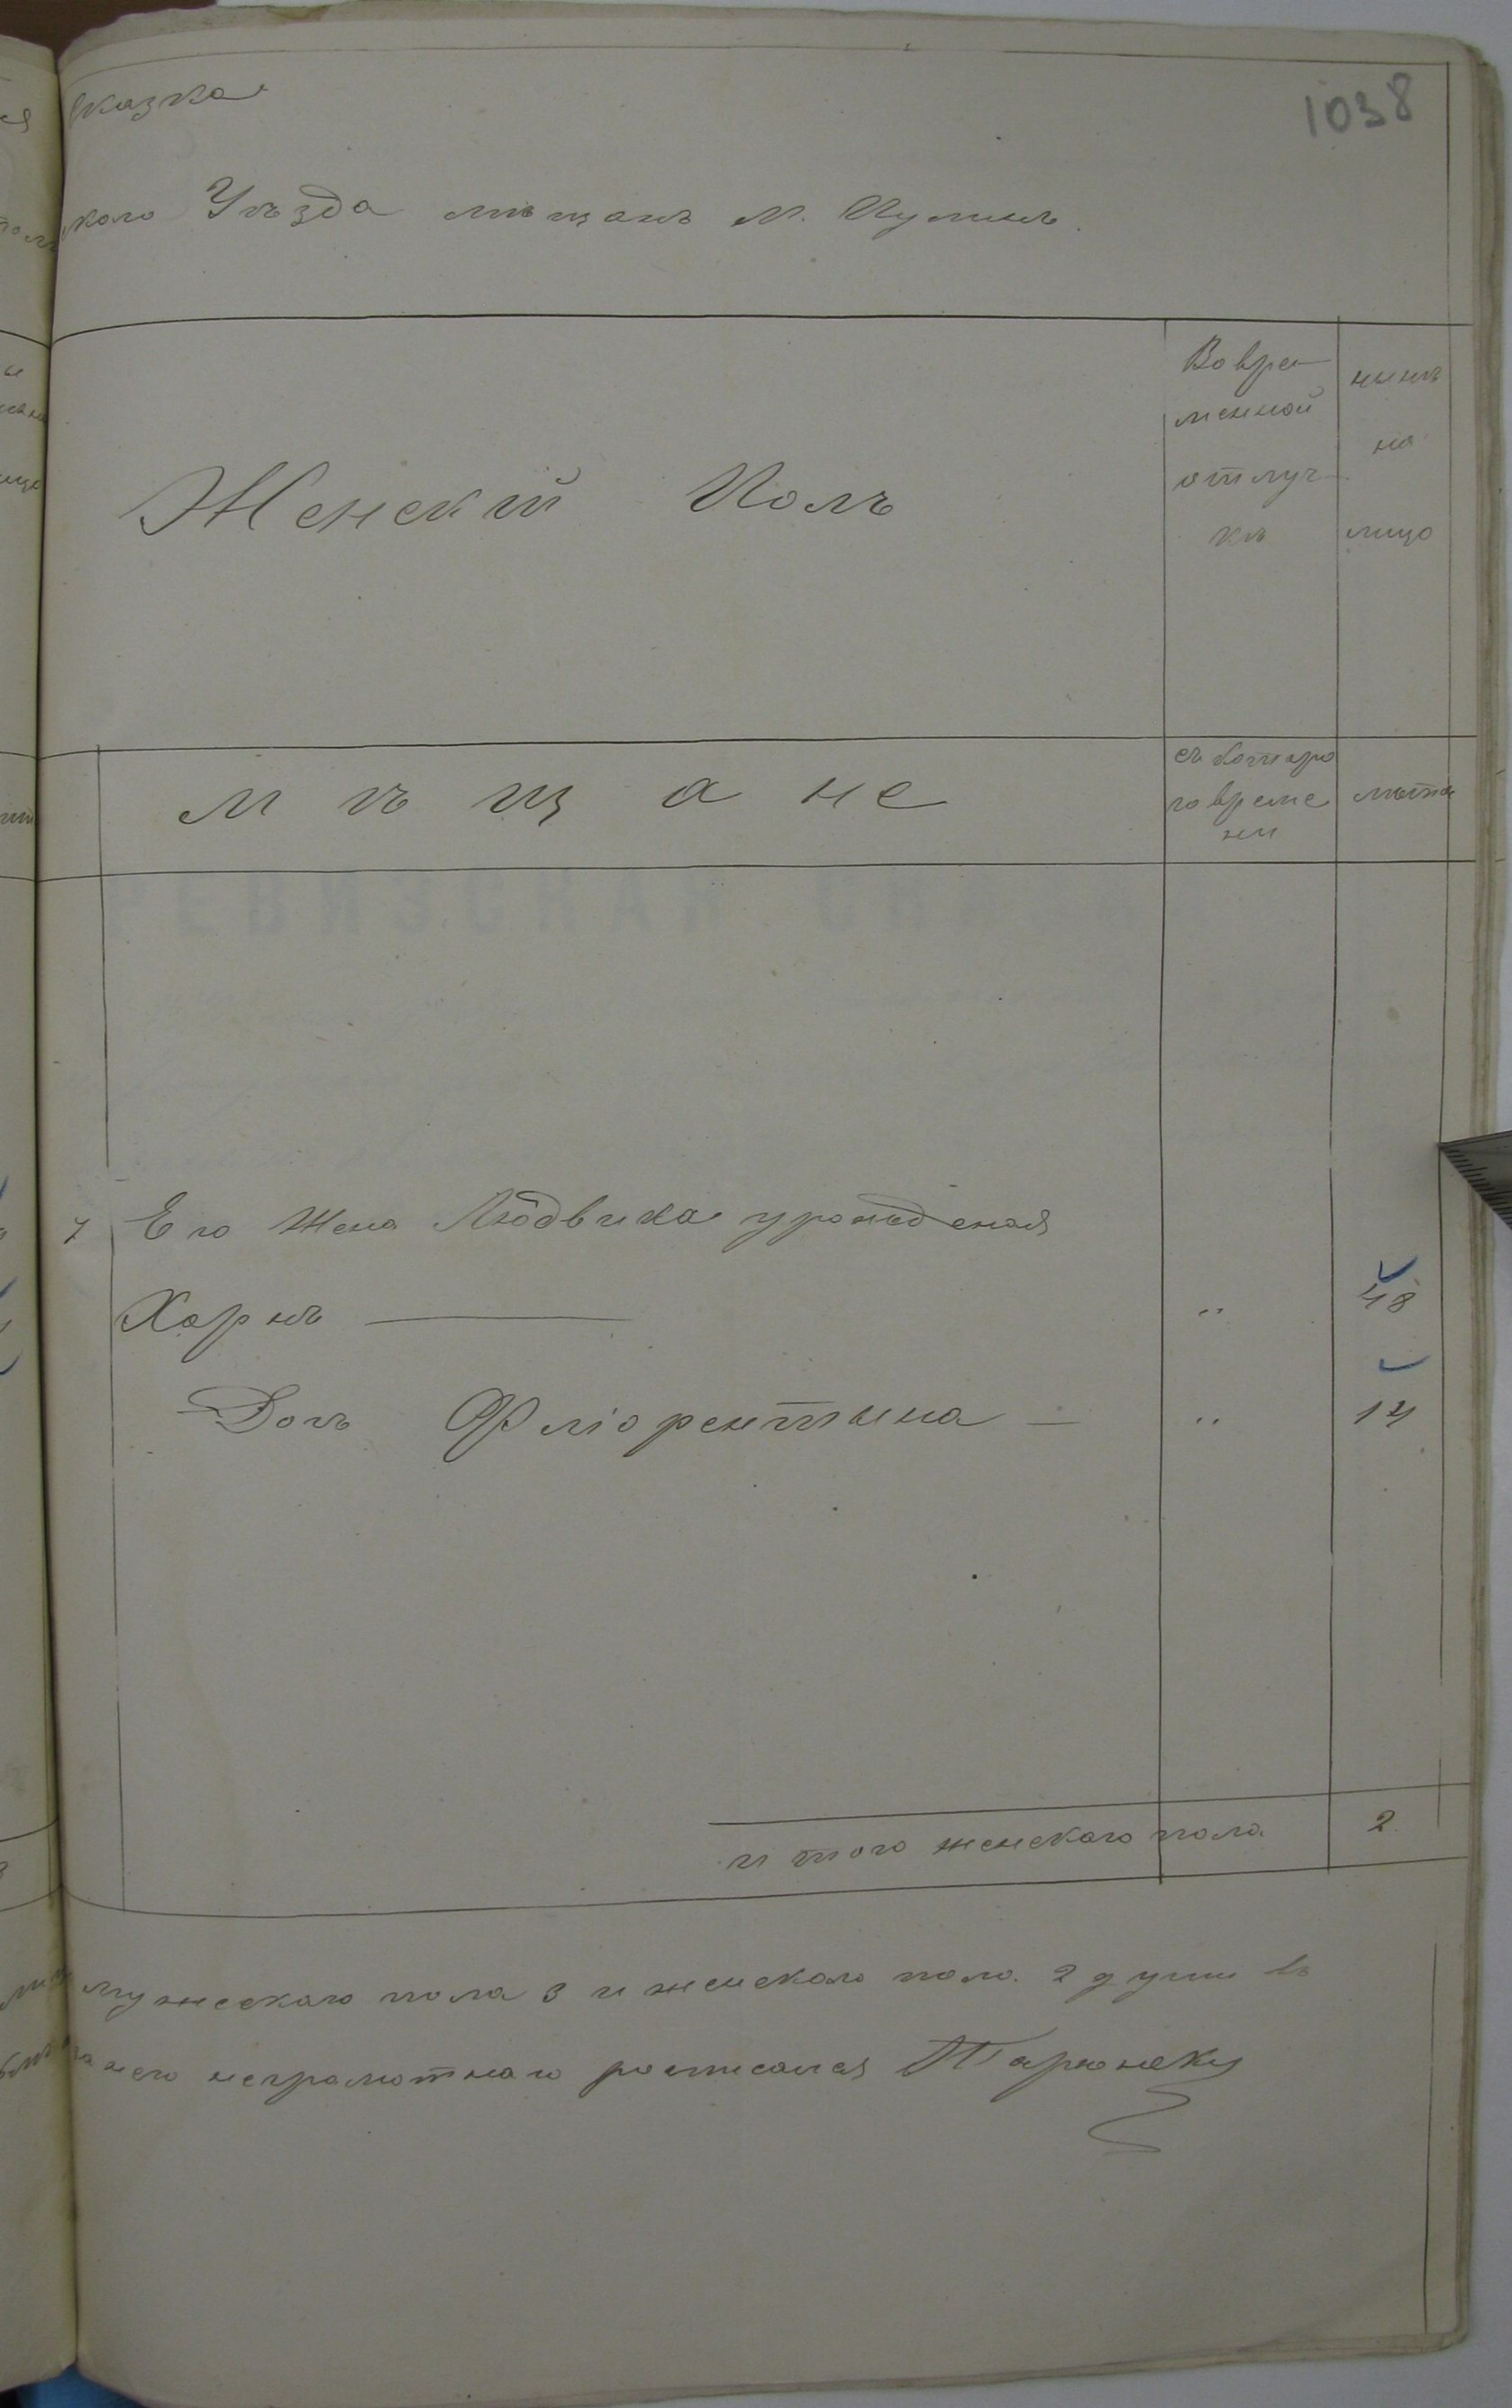 сказка
1038
кого Уѣзда мѣщанъ м. Пулинъ
Женскій Полъ
Во вре-
менной
отлуч-
кѣ
нынѣ
на
лицо
мѣщане
съ котораго
времени
лѣта
РЕВИЗСКАЯ СКАЗКА
7 Его Жена Людвика урожденая
Хорнъ „ 48
Дочь Флiорентына — „ 14
итого женскаго пола 2
мужескаго пола 3 и женскаго пола 2 души въ
него неграмотнаго росписался